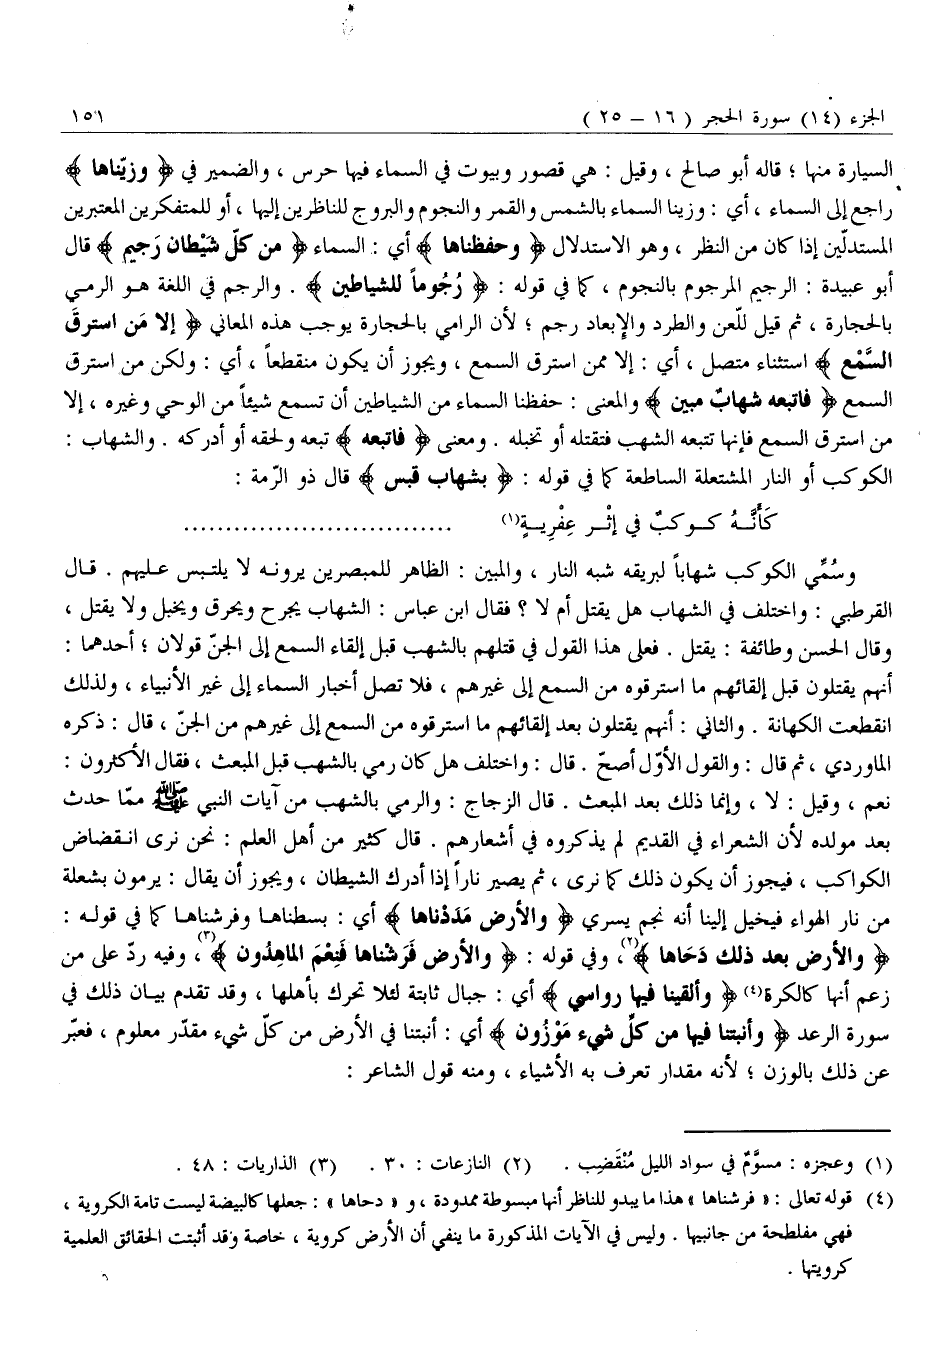 الجزء (١٤) سورة الحجر ( ١٦ – ٢٥ ) ١٥١
السيارة منها ؛ قاله أبو صالح ، وقيل : هي قصور وبيوت في السماء فيها حرس ، والضمير في ﴿ وزيّناها ﴾
راجع إلى السماء ، أي : وزينا السماء بالشمس والقمر والنجوم والبروج للناظرين إليها ، أو للمتفكرين المعتبرين
المستدلّين إذا كان من النظر ، وهو الاستدلال ﴿ وحفظناها ﴾ أي : السماء ﴿ من كلّ شَيْطان رَجيم ﴾ قال
أبو عبيدة : الرجيم المرجوم بالنجوم ، كما في قوله : ﴿ رُجُوماً للشياطين ﴾ . والرجم في اللغة هو الرمي
بالحجارة ، ثم قيل للّعن والطرد والإبعاد رجم ؛ لأن الرامي بالحجارة يوجب هذه المعاني ﴿ إلا مَن استرقَ
السَّمْع ﴾ استثناء متصل ، أي : إلا ممن استرق السمع ، ويجوز أن يكون منقطعاً ، أي : ولكن من استرق
السمع ﴿ فاتبعه شهابٌ مبين ﴾ والمعنى : حفظنا السماء من الشياطين أن تسمع شيئاً من الوحي وغيره ، إلا
من استرق السمع فإنها تتبعه الشهب فتقتله أو تخبله . ومعنى ﴿ فاتبعه ﴾ تبعه ولحقه أو أدركه . والشهاب :
الكوكب أو النار المشتعلة الساطعة كما في قوله : ﴿ بشهاب قبس ﴾ قال ذو الرّمة :
كَأَنَّهُ كـوكبٌ في إثْـر عِفْرِيـةٍ(١) ................................
وسُمِّي الكوكب شهاباً لبريقه شبه النار ، والمبين : الظاهر للمبصرين يرونه لا يلتبس عليهم . قال
القرطبي : واختلف في الشهاب هل يقتل أم لا ؟ فقال ابن عباس : الشهاب يجرح ويحرق ويخبل ولا يقتل ،
وقال الحسن وطائفة : يقتل . فعلى هذا القول في قتلهم بالشهب قبل إلقاء السمع إلى الجنّ قولان ؛ أحدهما :
أنهم يقتلون قبل إلقائهم ما استرقوه من السمع إلى غيرهم ، فلا تصل أخبار السماء إلى غير الأنبياء ، ولذلك
انقطعت الكهانة . والثاني : أنهم يقتلون بعد إلقائهم ما استرقوه من السمع إلى غيرهم من الجنّ ، قال : ذكره
الماوردي ، ثم قال : والقول الأوّل أصحّ . قال : واختلف هل كان رمي بالشهب قبل المبعث ، فقال الأكثرون :
نعم ، وقيل : لا ، وإنما ذلك بعد المبعث . قال الزجاج : والرمي بالشهب من آيات النبي ﷺ ممّا حدث
بعد مولده لأن الشعراء في القديم لم يذكروه في أشعارهم . قال كثير من أهل العلم : نحن نرى انقضاض
الكواكب ، فيجوز أن يكون ذلك كما نرى ، ثم يصير ناراً إذا أدرك الشيطان ، ويجوز أن يقال : يرمون بشعلة
من نار الهواء فيخيل إلينا أنه نجم يسري ﴿ والأرض مَدَدْناها ﴾ أي : بسطناها وفرشناها كما في قوله :
﴿ والأرض بعد ذلك دَحَاها ﴾(٢)، وفي قوله : ﴿ والأرض فَرَشْناها فَنِعْمَ الماهِدُون ﴾(٣)، وفيه ردّ على من
زعم أنها كالكرة(٤) ﴿ وألقينا فيها رواسي ﴾ أي : جبال ثابتة لئلا تحرك بأهلها ، وقد تقدم بيان ذلك في
سورة الرعد ﴿ وأنبتنا فيها من كلّ شيء مَوْزُون ﴾ أي : أنبتنا في الأرض من كلّ شيء مقدّر معلوم ، فعبّر
عن ذلك بالوزن ؛ لأنه مقدار تعرف به الأشياء ، ومنه قول الشاعر :
(١) وعجزه : مسوَّمٌ في سواد الليل مُنْقَضِب . (٢) النازعات : ٣٠ . (٣) الذاريات : ٤٨ .
(٤) قوله تعالى : « فرشناها » هذا ما يبدو للناظر أنها مبسوطة ممدودة ، و « دحاها » : جعلها كالبيضة ليست تامة الكروية ،
فهي مفلطحة من جانبيها . وليس في الآيات المذكورة ما ينفي أن الأرض كروية ، خاصة وقد أثبتت الحقائق العلمية
كرويتها .